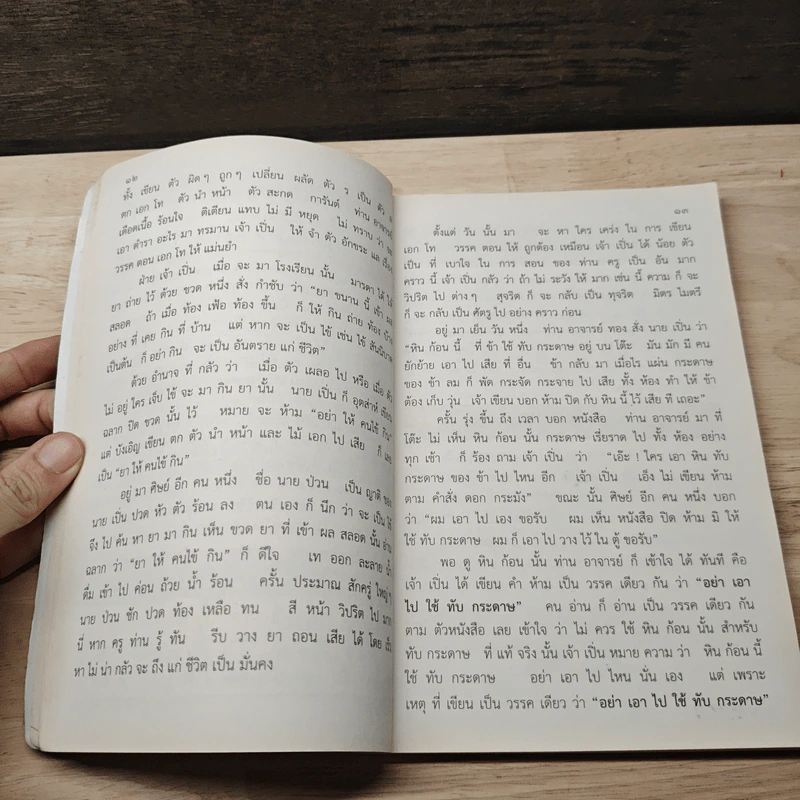 ๑๒
ทั้ง เขียน ตัว ผิดๆ ถูกๆ เปลี่ยน ผลัด ตัว ร เป็น ตัว
ตก เอก โท ตัว นำ หน้า ตัว สะกด การันต์ ท่าน อาจารย์
เดือดเนื้อ ร้อนใจ ติเตียน แทบ ไม่ มี หยุด ไม่ ทราบ ว่า
เอา ตำรา อะไร มา ทรมาน เจ้า เปิ่น ให้ จำ ตัว อักขระ แล
วรรค ตอน เอก โท ให้ แม่นยำ
ฝ่าย เจ้า เปิ่น เมื่อ จะ มา โรงเรียน นั้น มารดา ได้
ยา ถ่าย ไว้ ด้วย ขวด หนึ่ง สั่ง กำชับ ว่า “ยา ขนาน นี้ เจ้า
สลอด ถ้า เมื่อ ท้อง เฟ้อ ท้อง ขึ้น ก็ ให้ กิน ถ่าย ท้อง บ้าง
อย่าง ที่ เคย กิน ที่ บ้าน แต่ หาก จะ เป็น ไข้ เช่น ไข้ สันนิบาต
เป็นต้น ก็ อย่า กิน จะ เป็น อันตราย แก่ ชีวิต”
ด้วย อำนาจ ที่ กลัว ว่า เมื่อ ตัว เผลอ ไป หรือ เมื่อ ตัว
ไม่ อยู่ ใคร เจ็บ ไข้ จะ มา กิน ยา นั้น นาย เปิ่น ก็ อุตส่าห์ เขียน
ฉลาก ปิด ขวด นั้น ไว้ หมาย จะ ห้าม “อย่า ให้ คนไข้ กิน”
แต่ บังเอิญ เขียน ตก ตัว นำ หน้า และ ไม้ เอก ไป เสีย ก็
เป็น “ยา ให้ คนไข้ กิน”
อยู่ มา ศิษย์ อีก คน หนึ่ง ชื่อ นาย ป่วน เป็น ญาติ ของ
นาย เปิ่น ปวด หัว ตัว ร้อน ลง ตน เอง ก็ นึก ว่า จะ เป็น ไข้
จึง ไป ค้น หา ยา มา กิน เห็น ขวด ยา ที่ เข้า ผล สลอด นั้น อ่าน
ฉลาก ว่า “ยา ให้ คนไข้ กิน” ก็ ดีใจ เท ออก ละลาย น้ำ
ดื่ม เข้า ไป ค่อน ถ้วย น้ำ ร้อน ครั้น ประมาณ สักครู่ ใหญ่ ๆ
นาย ป่วน ชัก ปวด ท้อง เหลือ ทน สี หน้า วิปริต ไป มาก
นี่ หาก ครู ท่าน รู้ ทัน รีบ วาง ยา ถอน เสีย ได้ โดย เร็ว
หา ไม่ น่า กลัว จะ ถึง แก่ ชีวิต เป็น มั่นคง
๑๓
ตั้งแต่ วัน นั้น มา จะ หา ใคร เคร่ง ใน การ เขียน
เอก โท วรรค ตอน ให้ ถูกต้อง เหมือน เจ้า เปิ่น ได้ น้อย ตัว
เป็น ที่ เบาใจ ใน การ สอน ของ ท่าน ครู เป็น อัน มาก
คราว นี้ เจ้า เปิ่น กลัว ว่า ถ้า ไม่ ระวัง ให้ มาก เช่น นี้ ความ ก็ จะ
วิปริต ไป ต่างๆ สุจริต ก็ จะ กลับ เป็น ทุจริต มิตร ไมตรี
ก็ จะ กลับ เป็น ศัตรู ไป อย่าง คราว ก่อน
อยู่ มา เย็น วัน หนึ่ง ท่าน อาจารย์ ทอง สั่ง นาย เปิ่น ว่า
“หิน ก้อน นี้ ที่ ข้า ใช้ ทับ กระดาษ อยู่ บน โต๊ะ มัน มัก มี คน
ยักย้าย เอา ไป เสีย ที่ อื่น ข้า กลับ มา เมื่อไร แผ่น กระดาษ
ของ ข้า ลม ก็ พัด กระจัด กระจาย ไป เสีย ทั้ง ห้อง ทำ ให้ ข้า
ต้อง เก็บ วุ่น เจ้า เขียน บอก ห้าม ปิด กับ หิน นี้ ไว้ เสีย ที เถอะ”
ครั้น รุ่ง ขึ้น ถึง เวลา บอก หนังสือ ท่าน อาจารย์ มา ที่
โต๊ะ ไม่ เห็น หิน ก้อน นั้น กระดาษ เรี่ยราด ไป ทั้ง ห้อง อย่าง
ทุก เช้า ก็ ร้อง ถาม เจ้า เปิ่น ว่า “เอ๊ะ ! ใคร เอา หิน ทับ
กระดาษ ของ ข้า ไป ไหน อีก เจ้า เปิ่น เอ็ง ไม่ เขียน ห้าม
ตาม คำสั่ง ดอก กระมัง” ขณะ นั้น ศิษย์ อีก คน หนึ่ง บอก
ว่า “ผม เอา ไป เอง ขอรับ ผม เห็น หนังสือ ปิด ห้าม มิ ให้
ใช้ ทับ กระดาษ ผม ก็ เอา ไป วาง ไว้ ใน ตู้ ขอรับ”
พอ ดู หิน ก้อน นั้น ท่าน อาจารย์ ก็ เข้าใจ ได้ ทันที คือ
เจ้า เปิ่น ได้ เขียน คำ ห้าม เป็น วรรค เดียว กัน ว่า “อย่า เอา
ไป ใช้ ทับ กระดาษ” คน อ่าน ก็ อ่าน เป็น วรรค เดียว กัน
ตาม ตัวหนังสือ เลย เข้าใจ ว่า ไม่ ควร ใช้ หิน ก้อน นั้น สำหรับ
ทับ กระดาษ ที่ แท้ จริง นั้น เจ้า เปิ่น หมาย ความ ว่า หิน ก้อน นี้
ใช้ ทับ กระดาษ อย่า เอา ไป ไหน นั่น เอง แต่ เพราะ
เหตุ ที่ เขียน เป็น วรรค เดียว ว่า “อย่า เอา ไป ใช้ ทับ กระดาษ”